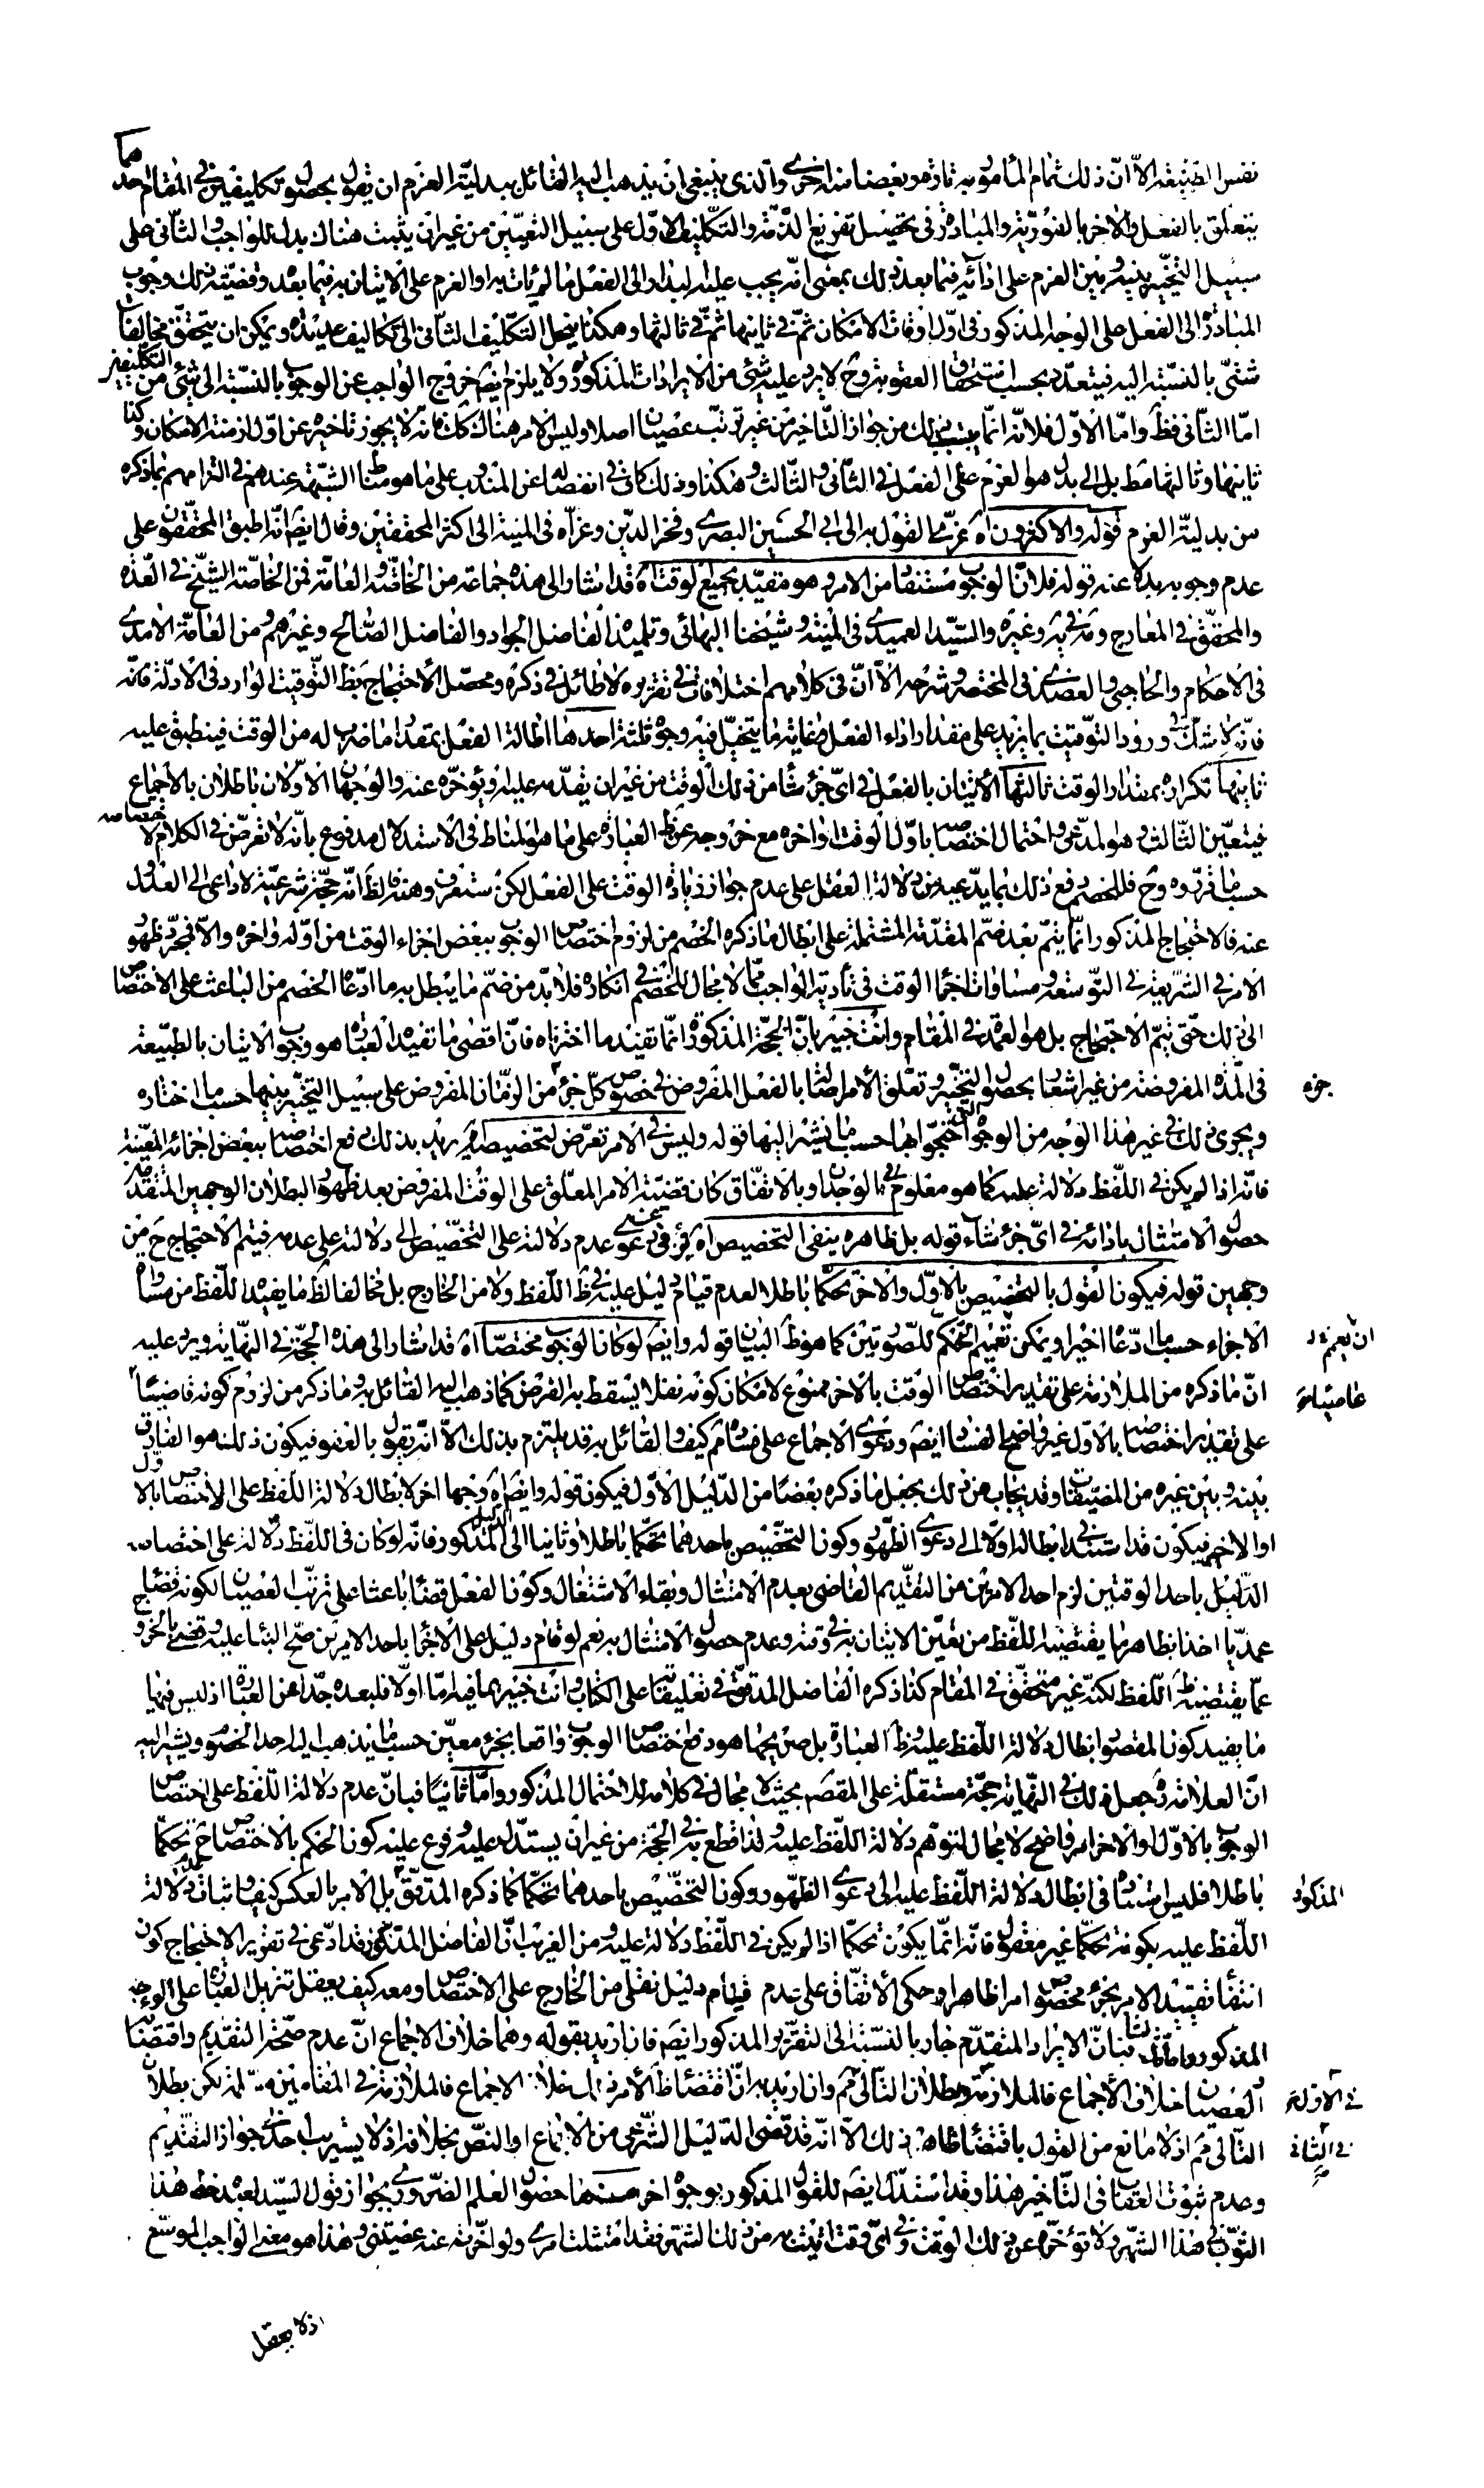 نفس الطبيعة الا انّ ذلك تمام المأمور به تارة وبعضا منه اخرى والذى ينبغى ان يذهب اليه القائل ببدلية العزم ان يقول بحصول تكليفين فى المقام احدهما
يتعلق بالفعل والاخر بالفورية والمبادرة فى تحصيل تفريغ الذمة والتكليف الاول على سبيل التعيين من غير ان يثبت هناك بدل للواجب والثانى على
سبيل التخيير بينه وبين العزم على ادائه فيما بعد ذلك بمعنى انه يجب عليه البدار الى الفعل ما لم يات به او العزم على الاتيان به فيما بعد وقضية ذلك وجوب
المبادرة الى الفعل على الوجه المذكور فى اول اوقات الامكان ثم فى ثانيها ثم فى ثالثها وهكذا ينحل التكليف الثانى الى تكاليف عديدة ويمكن ان يتحقق مخالفات
شتى بالنسبة اليه فيتعدد بحسب استحقاق العقوبة وح لا يرد عليه شئ من الايرادات المذكورة ولا يلزم ايضا خروج الواجب عن الوجوب بالنسبة الى شئ من التكليفين
امّا الثانى فظ وامّا الاول فلانه انما يتسبب ذلك من جواز التاخير من غير ترتب عصيان اصلا وليس الامر هناك كك فانه لا يجوز تاخيره عن اول ازمنة الامكان وكذا
ثانيها وثالثها فقط بل الى بدل هو العزم على الفعل فى الثانى والثالث وهكذا وذلك كاف فى انفصاله عن المندوب على ما هو مناط الشبهة عندهم فى التزامهم بما ذكره
من بدلية العزم قوله والاكثرون اه عزى القول به الى ابى الحسين البصرى وفخر الدين وعزاه فى المنية الى اكثر المحققين وقال ايضا انه اطبق المحققون على
عدم وجوبه بدلا عنه قوله فلانّ الوجوب مستفاد من الامر وهو مقيد بجميع الوقت اه قد اشار الى هذه جماعة من الخاصة والعامة فمن الخاصة الشيخ فى العدّه
والمحقق فى المعارج ومة فى يه وغيره والسيد العميدى فى المنية وشيخنا البهائى وتلميذه الفاضل الجواد والفاضل الصالح وغيرهم ومن العامة الامدى
فى الاحكام والحاجبى والعضدى فى المختصر وشرحه الا انّ فى كلامهم اختلافات فى تقريره لا طائل فى ذكره ومحصل الاحتجاج بظ التوقيت الوارد فى الادلة فانه
فانه لا شك فى ورود التوقيت بما يزيد على مقدار اداء الفعل وغاية ما يتخيل فيه وجوه ثلثة احدها اطالة الفعل بمقدار ما ضرب له من الوقت فينطبق عليه
ثانيها تكراره بمقدار الوقت ثالثها الاتيان بالفعل فى اى جزء شاء من ذلك الوقت من غير ان يقدمه عليه ويؤخره عنه والوجهان الاولان باطلان بالاجماع
فيتعين الثالث وهو المدعى واحتمال اختصاصه باول الوقت او اخره مع خروجه عن ظ العبارة على ما هو المناط فى الاستدلال مدفوع بانه لا تعرض فى الكلام لاختصاصه
حسب ما قرروه وح فللخصم رفع ذلك بما يدعيه من دلالة العقل على عدم جواز زيادة الوقت على الفعل لكن ستعرف وهنه لظ انه حجة شرعية لا داعى الى العدول
عنه فالاحتجاج المذكور انما يتم بعد ضم المقدمة المشتملة على ابطال ما ذكره الخصم من لزوم اختصاص الوجوب ببعض اجزاء الوقت من اوله واخره والا فبمجرد ظهور
الامر فى الشريعة فى التوسعة ومساوات اجزاء الوقت فى تادية الواجب مما لا مجال للخصم فى انكاره فلا بد من ضم ما يبطل به ما ادعاه الخصم من الباعث على الاختصاص
الى ذلك حتى يتم الاحتجاج بل هو العمدة فى المقام وانت خبير بانّ الحجة المذكورة انما تفيد ما اخترناه فانّ اقصى ما تفيده العبارة هو وجوب الاتيان بالطبيعة
فى المدة المفروضة من غير اشعار بحصول التخيير وتعلق الامر اصالة بالفعل المفروض فى خصوص كل جزء من الزمان المفروض على سبيل التخيير بينها حسب ما اختاره
جزء
ويجرى ذلك فى غير هذا الوجه من الوجوه التى احتجوا بها حسب ما نشير اليها قوله وليس فى الامر تعرض لتخصيصه اه يريد بذلك دفع اختصاصه ببعض اجزائه المعينة
فانه اذا لم يكن فى اللفظ دلالة عليه كما هو معلوم بالوجدان وبالاتفاق كان قضية الامر المعلق على الوقت المفروض بعد ظهور البطلان الوجهين المتقدمين
حصول الامتثال بادائه فى اى جزء شاء قوله بل ظاهره ينفى التخصيص اه ترقى عن دعوى عدم دلالته على التخصيص الى دلالته على عدمه فيتم الاحتجاج ح من
وجهين قوله فيكون القول بالتخصيص بالاول والاخر تحكما باطلا لعدم قيام دليل عليه فى ظ اللفظ ولا من الخارج بل مخالفا لظ ما يفيده اللفظ من مساواة
الاجزاء حسب ما ادعاه اخيرا ويمكن تعميم التحكم للصورتين كما هو ظ البيان قوله وايضا لو كان الوجوب مختصا اه قد اشار الى هذه الحجة فى النهاية ويرد عليه
انّ ما ذكره من الملازمة على تقدير اختصاص الوقت بالاخر ممنوع لامكان كونه نفلا يسقط به الفرض كما ذهب اليه القائل به وما ذكر من لزوم كونه قاضيا
على تقدير اختصاصه بالاول غير واضح الفساد ايضا ودعوى الاجماع على فساده مم كيف والقائل به قد يلتزم بذلك الا انه يقول بالعفو فيكون ذلك هو الفارق
بينه وبين غيره من المضيقات وقد يجاب عن ذلك بجعل ما ذكره بعضا من الدليل الاول فيكون قوله وايضا اه وجها اخر لابطال دلالة اللفظ على الاختصاص بالاول
او الاخر فيكون قد استند فى ابطاله اولا الى دعوى الظهور وكون التخصيص باحدهما تحكما باطلا وثانيا الى الدليل المذكور فانه لو كان فى اللفظ دلالة على اختصاصه
الدليل باحد الوقتين لزم احد الامرين من التقديم القاضى بعدم الامتثال وبقاء الاشتغال وكون الفعل قضاء باعثا على ترتب العصيان لكونه
عمديا اخذا بظاهر ما يقتضيه اللفظ من تعين الاتيان به فى وقته وعدم حصول الامتثال به نعم لو قام دليل على الاجزاء باحد الامرين صح البناء عليه وقضى بالخروج
عما يقتضيه ظ اللفظ لكنه غير متحقق فى المقام كذا ذكره الفاضل المدقق فى تعليقاته على الكتاب وانت خبير بما فيه امّا اولا فلبعده جدا عن العبارة اذ ليس فيها
ما يفيد كون المقصود ابطال دلالة اللفظ عليه وظ العبارة بل صريحها هو دفع اختصاص الوجوب واقعا بجزء معين حسب ما يذهب اليه احد الخصوم ويشير اليه
انّ العلامة ره جعل ذلك فى النهاية حجة مستقلة على المقصد بحيث لا مجال فى كلامه للاحتمال المذكور وامّا ثانيا فبانّ عدم دلالة اللفظ على اختصاص
الوجوب بالاول او الاخر امر واضح لا مجال لتوهم دلالة اللفظ عليه ولذا قطع به فى الحجة من غير ان يستدل عليه وفرع عليه كون الحكم بالاختصاص ح تحكما
باطلا فليس استناده فى ابطال دلالة اللفظ عليه الى دعوى الظهور وكون التخصيص باحدهما تحكما كما ذكره المدقق بل الامر بالعكس كيف واثبات عدم دلالة
المذكور
اللفظ عليه بكونه تحكما غير معقول فانه انما يكون تحكما اذا لم يكن فى اللفظ دلالة عليه ومن الغريب انّ الفاضل المذكور قد ادعى فى تقرير الاحتجاج كون
انتفاء تقييد الامر بجزء مخصوص امرا ظاهرا وحكى الاتفاق على عدم قيام دليل نقلى من الخارج على الاختصاص ومعه كيف يعقل تنزيل العبارة على الوجه
المذكور وامّا ثالثا فبانّ الايراد المتقدم جار بالنسبة الى التقرير المذكور ايضا فان اريد بقوله وهما خلاف الاجماع انّ عدم صحة التقديم واقتضائه
العصيان خلاف الاجماع فالملازمة وبطلان التالى مم وان اريد به انّ اقتضاء ظ الامر ذلك خلاف الاجماع فالملازمة فى المقامين مسلمة لكن بطلان
فى الاول
التالى مم اذ لا مانع من القول باقتضاء ظاهره ذلك الا انه قد قضى الدليل الشرعى من الاجماع او النص بخلافه اذ لا يستريب احد فى جواز التقديم
فى الثانى
وعدم ثبوت العقاب فى التاخير هذا وقد استدل ايضا للقول المذكور بوجوه اخر منها حصول العلم الضرورى بجواز قول السيد لعبده خط هذا
الثوب فى هذا الشهر ولا تؤخره عن ذلك الوقت وفى اى وقت اتيت به من ذلك الشهر فقد امتثلت امرى ولو اخرته عنه عصيتنى وهذا هو معنى الواجب الموسع
اذ لا يعقل